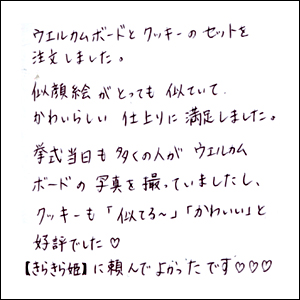 ウェルカムボードとクッキーのセットを
注文しました。
似顔絵がとっても似ていて
かわいらしい仕上りに満足しました。
挙式当日も多くの人がウェルカム
ボードの写真を撮っていましたし、
クッキーも「似てる〜」「かわいい」と
好評でした♡
【きらきら姫】に頼んでよかったです♡♡♡